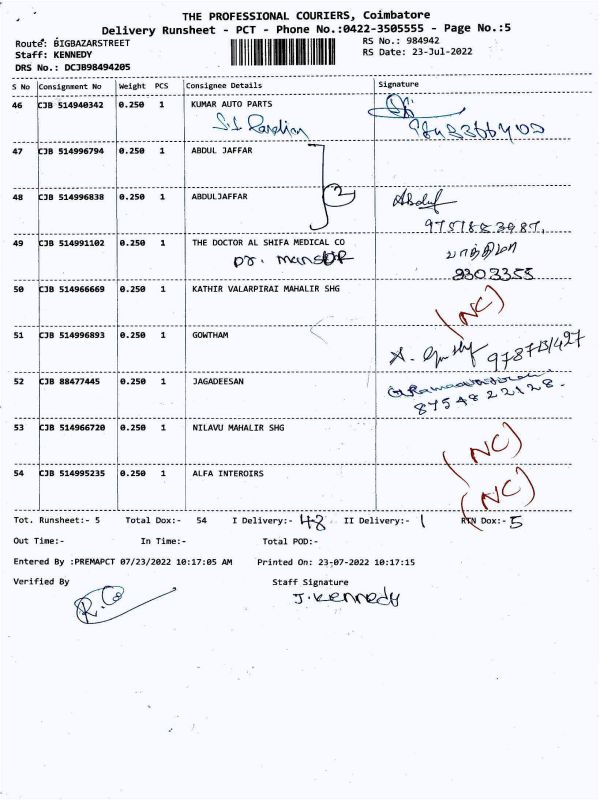 THE PROFESSIONAL COURIERS, Coimbatore
Delivery Runsheet - PCT - Phone No.:0422-3505555 - Page No.:5
Route: BIGBAZARSTREET RS No.: 984942
Staff: KENNEDY RS Date: 23-Jul-2022
DRS No.: DCJB98494205
S No Consignment No Weight PCS Consignee Details Signature
46 CJB 514940342 0.250 1 KUMAR AUTO PARTS
47 CJB 514996794 0.250 1 ABDUL JAFFAR
2
48 CJB 514996838 0.250 1 ABDULJAFFAR Abduf
49 CJB 514991102 0.250 1 THE DOCTOR AL SHIFA MEDICAL CO
Dr. mansur
9303355
50 CJB 514966669 0.250 1 KATHIR VALARPIRAI MAHALIR SHG (NC)
51 CJB 514996893 0.250 1 GOWTHAM
52 CJB 88477445 0.250 1 JAGADEESAN
8754822128.
53 CJB 514966720 0.250 1 NILAVU MAHALIR SHG (NC)
54 CJB 514995235 0.250 1 ALFA INTEROIRS (NC)
Tot. Runsheet:- 5 Total Dox:- 54 I Delivery:- 48 II Delivery:- 1 RTN Dox:- 5
Out Time:- In Time:- Total POD:-
Entered By :PREMAPCT 07/23/2022 10:17:05 AM Printed On: 23-07-2022 10:17:15
Verified By Staff Signature
J. Kennedy